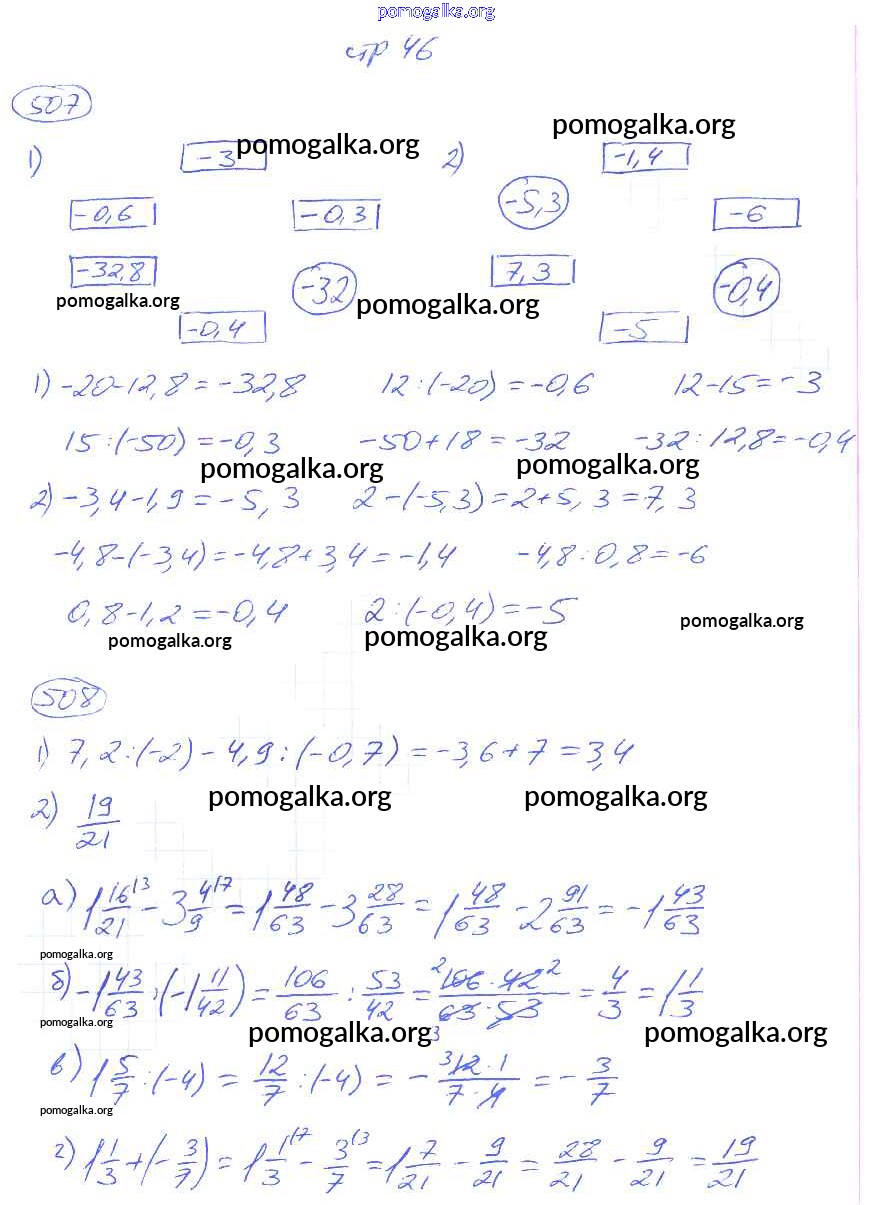 pomogalka.org
стр 46
507
1) -3 pomogalka.org 2) -1,4 pomogalka.org
-0,6 -0,3 -5,3 -6
-32,8 -32 7,3 -0,4
pomogalka.org pomogalka.org
-0,4 -5
1) -20-12,8=-32,8 12:(-20)=-0,6 12-15=-3
15:(-50)=-0,3 -50+18=-32 -32:12,8=-0,4
pomogalka.org pomogalka.org
2) -3,4-1,9=-5,3 2-(-5,3)=2+5,3=7,3
-4,8-(-3,4)=-4,8+3,4=-1,4 -4,8:0,8=-6
0,8-1,2=-0,4 2:(-0,4)=-5
pomogalka.org pomogalka.org pomogalka.org
508
1) 7,2:(-2)-4,9:(-0,7)=-3,6+7=3,4
pomogalka.org pomogalka.org
2) 19/21
а) 1 16/21 |3 - 3 4/9 |7 = 1 48/63 - 3 28/63 = 1 48/63 - 2 91/63 = -1 43/63
pomogalka.org
б) -1 43/63 : (-1 11/42) = 106/63 : 53/42 = 2 106·42 2 / 63·53 3 = 4/3 = 1 1/3
pomogalka.org pomogalka.org pomogalka.org
в) 1 5/7 : (-4) = 12/7 : (-4) = - 3 12·1 / 7·4 = - 3/7
pomogalka.org
г) 1 1/3 + (- 3/7) = 1 1/3 |7 - 3/7 |3 = 1 7/21 - 9/21 = 28/21 - 9/21 = 19/21